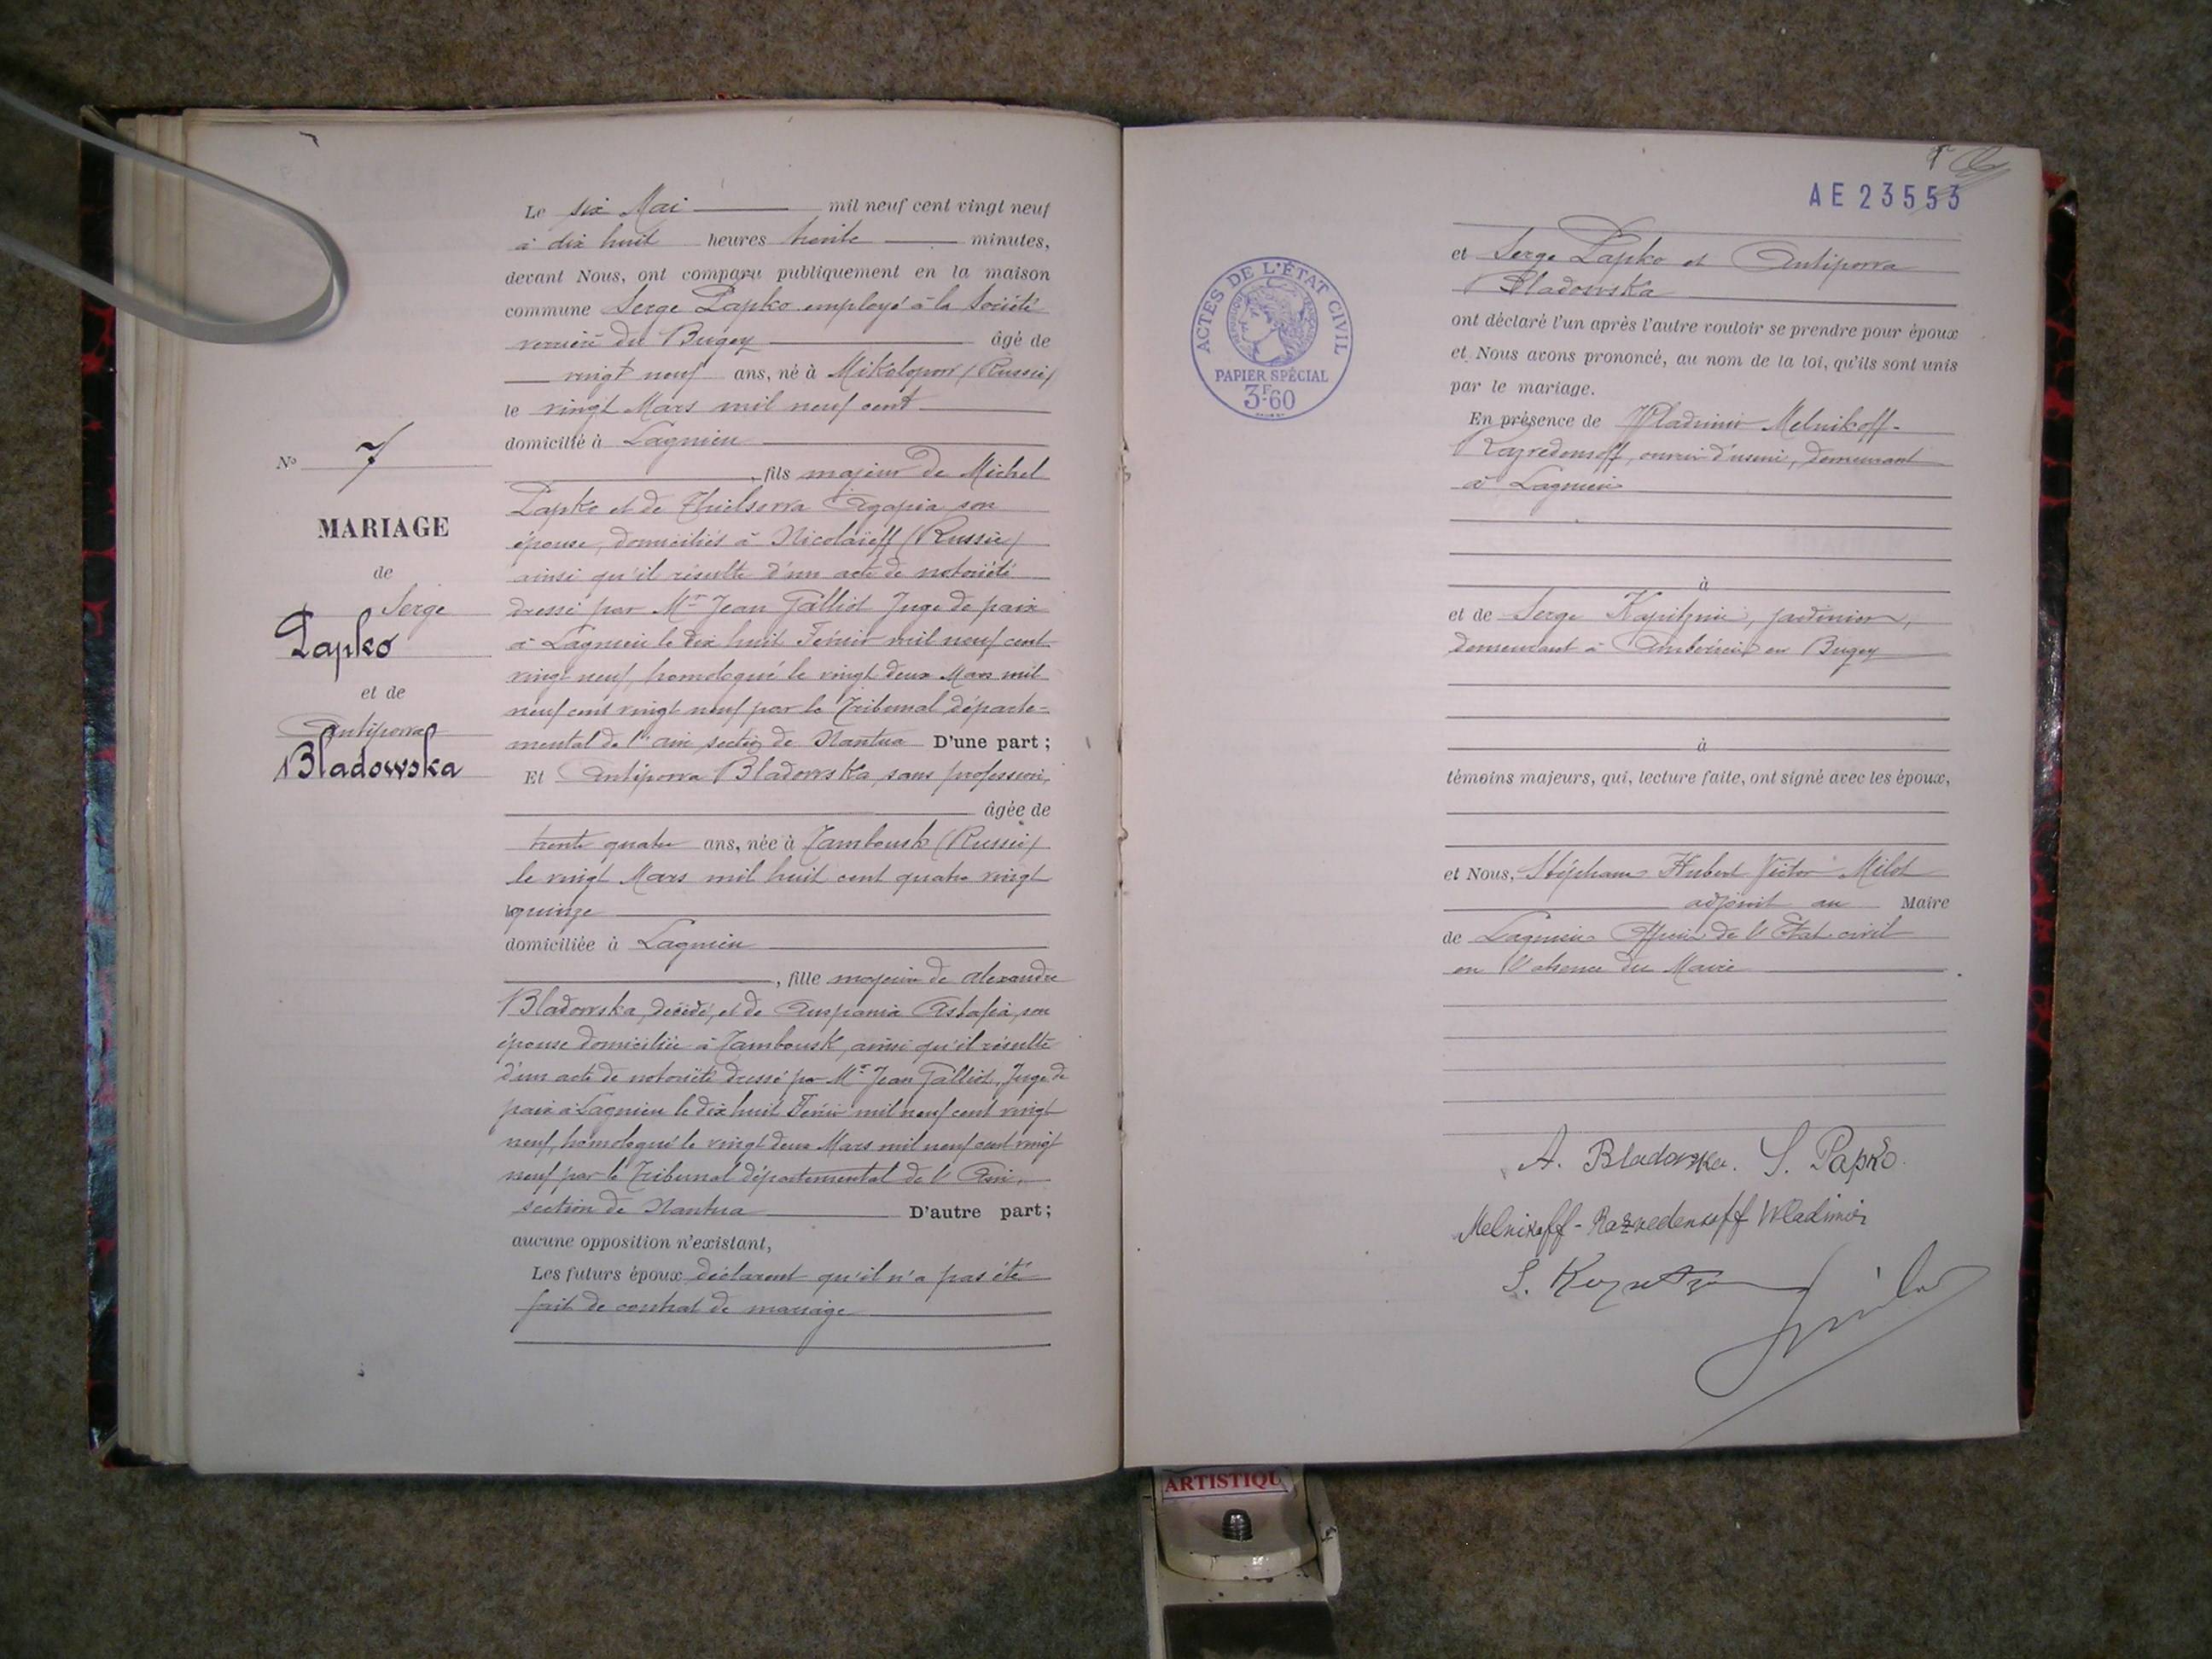 Le six Mai mil neuf cent vingt neuf
à dix huit heures trente minutes,
devant Nous, ont comparu publiquement en la maison
commune Serge Papko employé à la Société
verrière du Bugey âgé de
vingt neuf ans, né à Mikolopow (Russie)
le vingt Mars mil neuf cent
domicilié à Lagnieu
, fils majeur de Michel
Papko et de Agapia son
épouse, domiciliés à Nicolaieff (Russie)
ainsi qu'il résulte d'un acte de notoriété
dressé par Mr Jean Galliot Juge de paix
à Lagnieu le dix huit Février mil neuf cent
vingt neuf, homologué le vingt deux Mars mil
neuf cent vingt neuf par le Tribunal départe-
mental de l'ain section de Nantua D'une part;
Et Antiporra Bladowska, sans profession,
âgée de
trente quatre ans, née à Tambousk (Russie)
le vingt Mars mil huit cent quatre vingt
quinze
domiciliée à Lagnieu
, fille majeure de Alexandre
Bladowska, décédé, et de Astafia, son
épouse domiciliée à Tambousk, ainsi qu'il résulte
d'un acte de notoriété dressé par Mr Jean Galliot, Juge de
paix à Lagnieu le dix huit Février mil neuf cent vingt
neuf, homologué le vingt deux Mars mil neuf cent vingt
neuf par le Tribunal départemental de l'Ain,
section de Nantua D'autre part;
aucune opposition n'existant,
Les futurs époux déclarent qu'il n'a pas été
fait de contrat de mariage
No 7
MARIAGE
de
Serge
Papko
et de
Antiporra
Bladowska
AE 23553
et Serge Papko et Antiporra
Bladowska
ont déclaré l'un après l'autre vouloir se prendre pour époux
et Nous avons prononcé, au nom de la loi, qu'ils sont unis
par le mariage.
En présence de Wladimir Melnikoff-
Razvedenkoff, ouvrier d'usine, demeurant
à Lagnieu
à
et de Serge , jardinier,
demeurant à Ambérieu en Bugey
à
témoins majeurs, qui, lecture faite, ont signé avec les époux,
et Nous, Stéphane Hubert Victor Milot
adjoint au Maire
de Lagnieu Officier de l'Etat civil
en l'absence du Maire
A. Bladowska. S. Papko.
Melnikoff-Razvedenkoff Wladimir
S.
ACTES DE L'ÉTAT CIVIL
RÉPUBLIQUE FRANÇAISE
PAPIER SPÉCIAL
3F60
ARTISTIQU